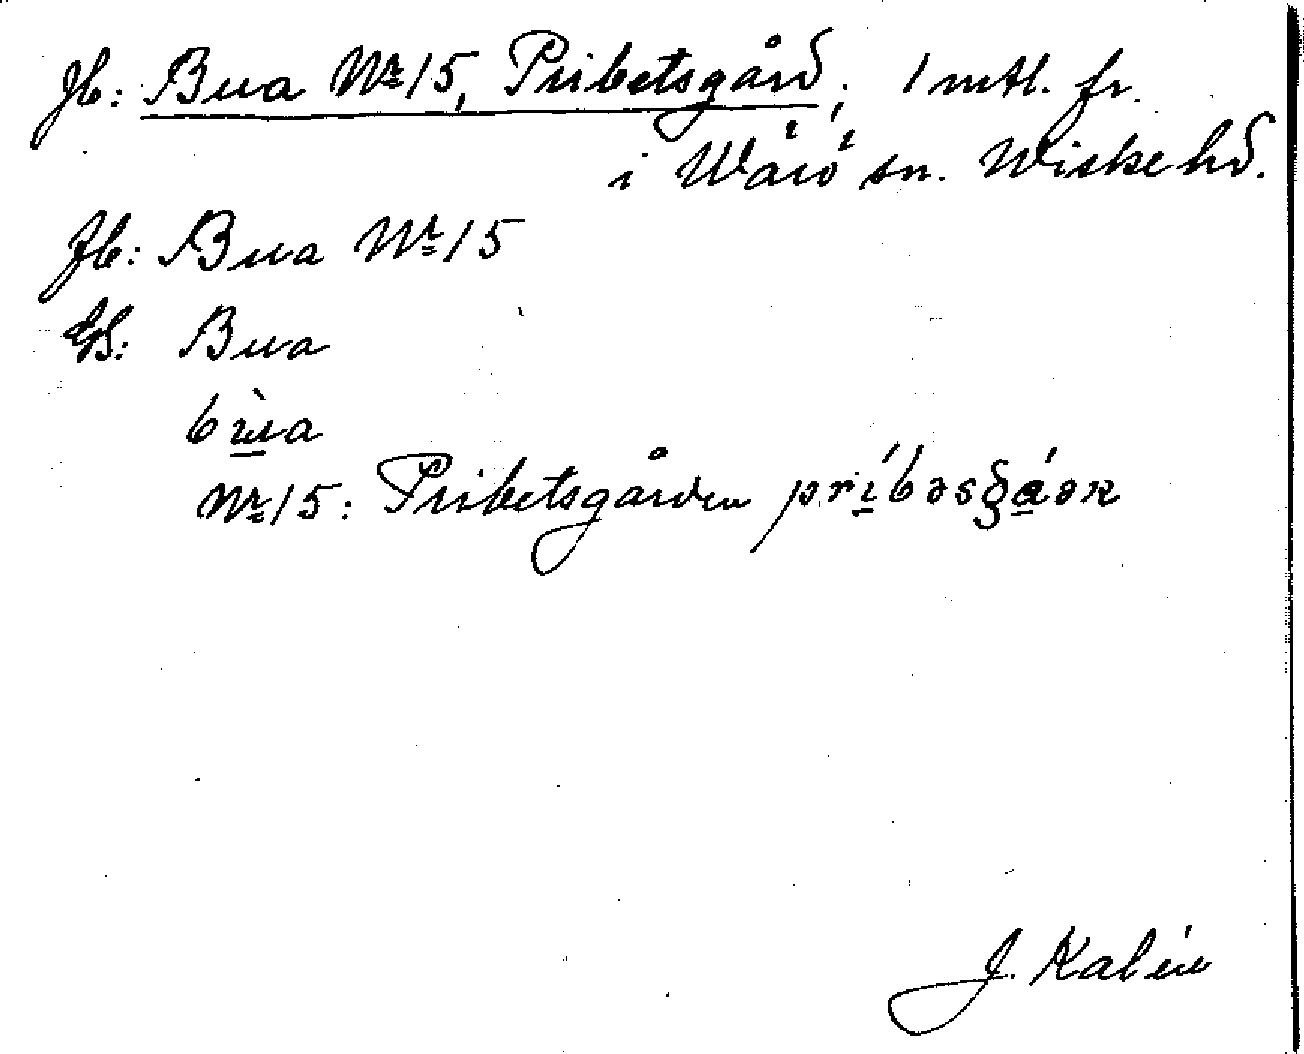 Jb: Bua Nr 15, Pribetsgård; 1 mtl. fr.
i Wärö sn. Wiske hd.
Jb: Bua Nr 15
GS: Bua
bùa
Nr 15: Pribetsgården príbəsgáən
J. Kalén